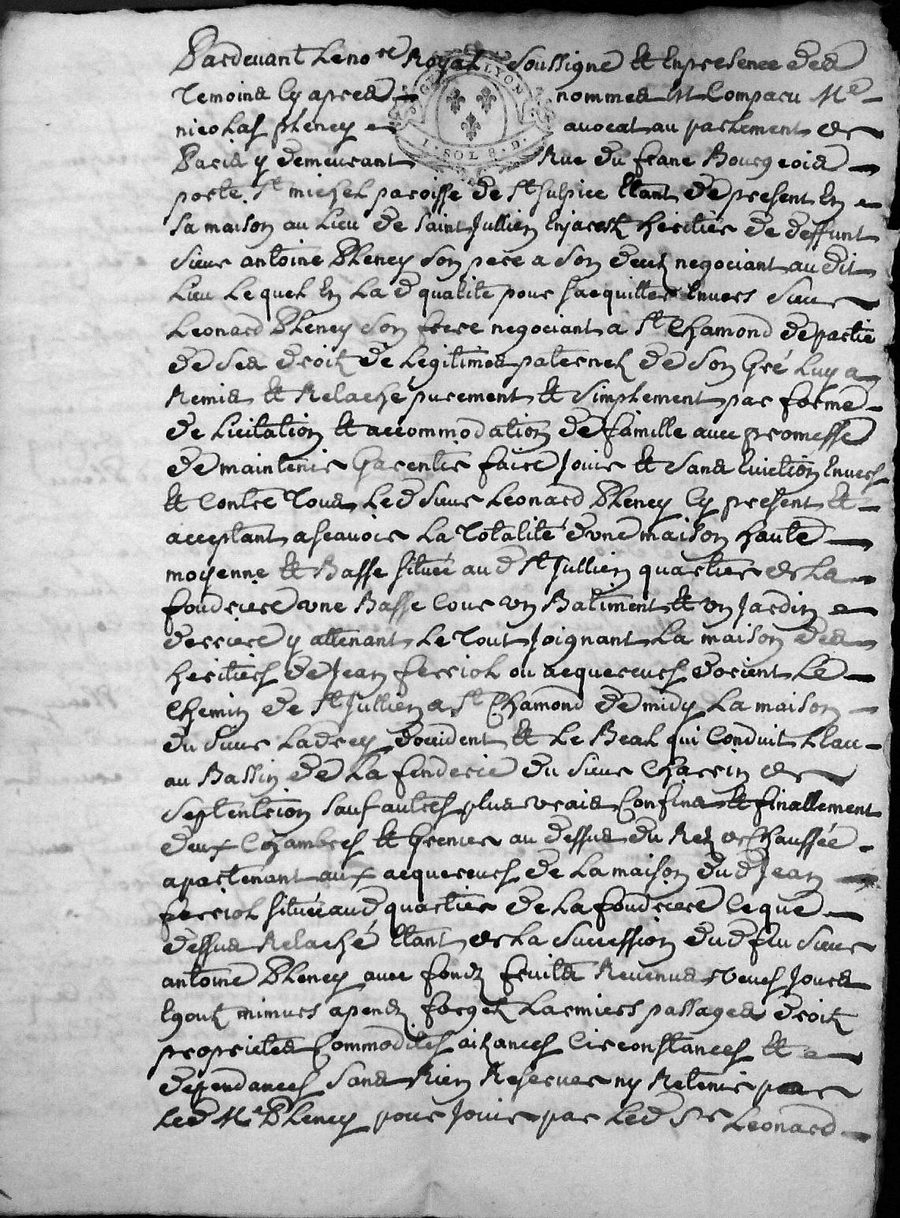 Pardevant Le no.re Royal Soussigné et En presence des
Temoins Cy apres nommes est Comparu Me
nicolas pheney avocat au parlement de
Paris y demeurant Rue du franc Bourgeois
porte St michel paroisse de St Sulpice Etant de present En
Sa maison au Lieu de Saint Jullien En jarest heritier de deffunt
Sieur antoine Pheney Son pere a Son deuz negociant audit
Lieu Lequel En La d qualité pour Sacquitter Envers Sieur
Leonard Pheney Son frere negociant a St Chamond de partie
de Ses droitz de Legitimes paternels de Son Gré Luy a
Remis et Relaché purement et Simplement par forme
de Licitation et accommodation de famille avec promesse
de maintenir Garentir faire Jouir et Sans Eviction Envers
et Contre Tous Led Sieur Leonard Pheney Cy present et
acceptant a Scavoir La Totalité d'une maison haute
moyenne et Basse Située aud St Jullien quartier de La
foudriere une Basse Cour un Batiment et un Jardin
derriere y attenant Le Tout Joignant La maison des
heritiers de Jean ferriol ou acquereurs d'orient Le
Chemin de St Jullien a St Chamond de midy La maison
du Sieur Ladrey d'occident et Le Beal qui Conduit L'eau
au Bassin de La fenderie du Sieur Charrin de
Septentrion Sauf autres plus vrais Confins et finallement
deux Chambres et Grenier au dessus du Rez de Chaussée
apartenant aux acquereurs de La maison dud Jean
ferriol Située aud quartier de La foudriere Ce que
dessus Relaché Etant de La Succession dud feu Sieur
antoine Pheney avec fondz fruits Revenus veues Jours
Egoutz mimurs apendz forgetz Larmiers passages droitz
proprietes Commodites aizances Circonstances et
dependances Sans Rien Reserver ny Retenir par
Led Me Pheney pour Jouir par Led Sr Leonard